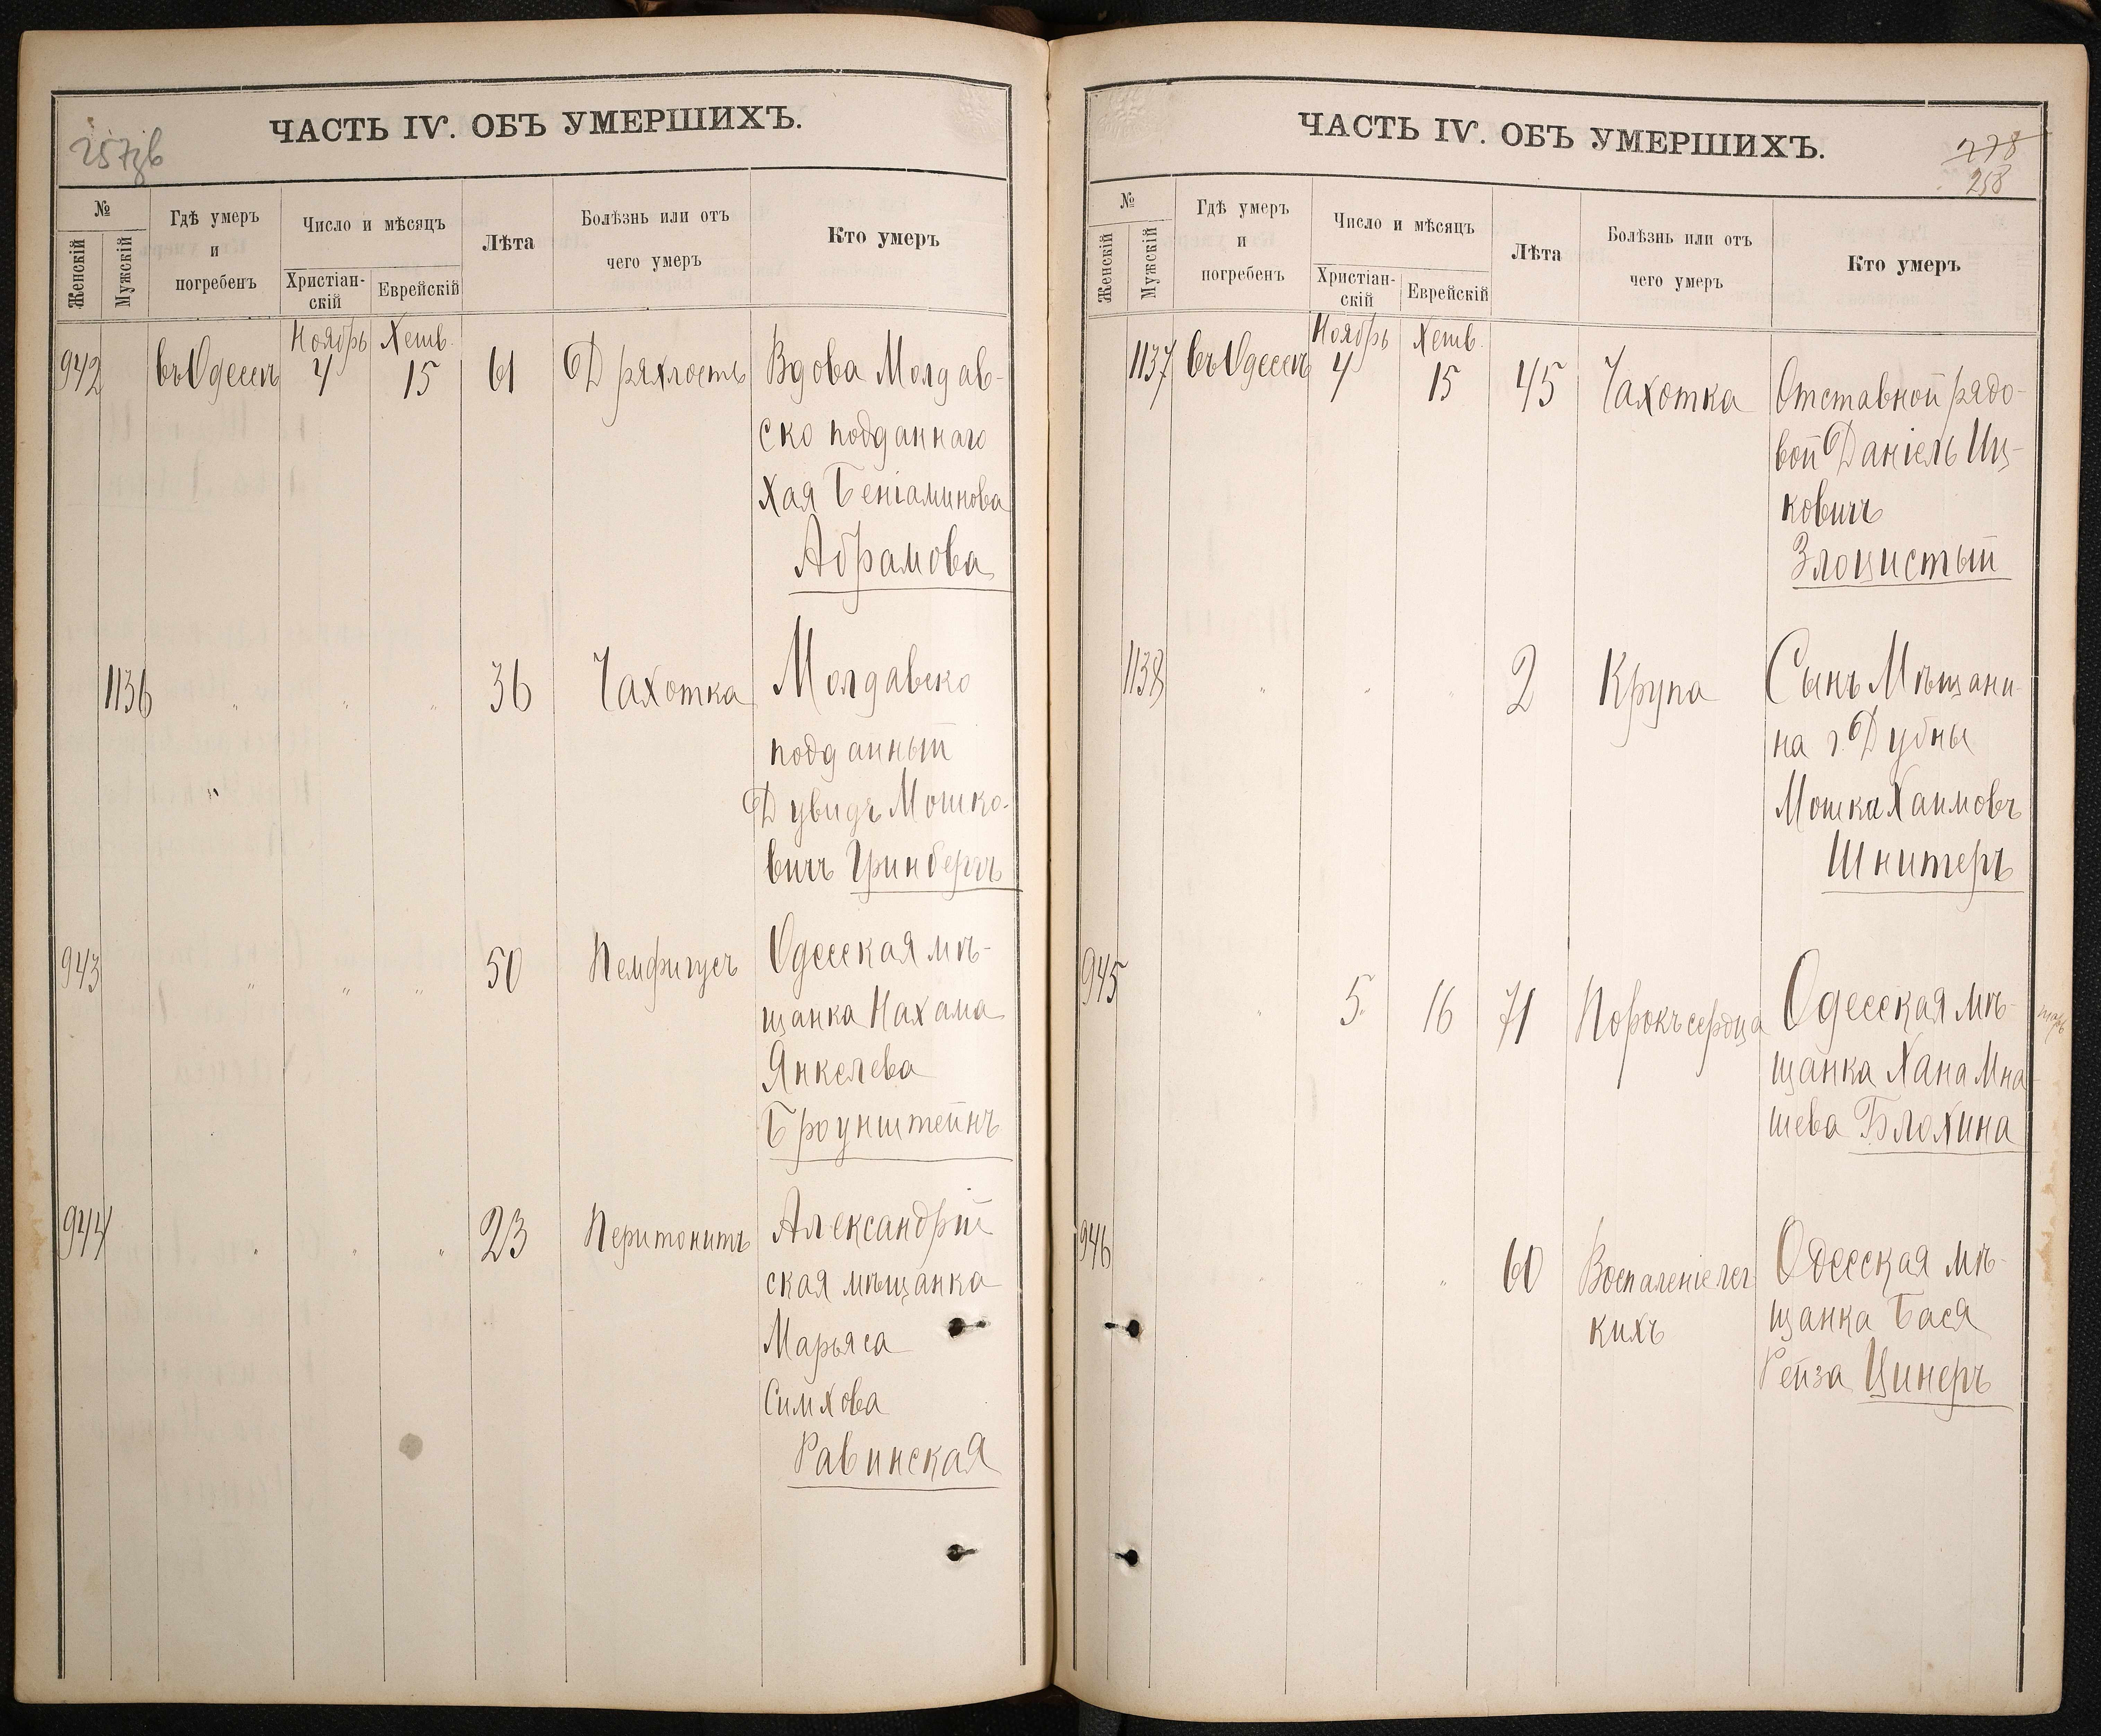 257об
ЧАСТЬ IV. ОБЪ УМЕРШИХЪ.
№
Женскій
Мужскій
Гдѣ умеръ
и
погребенъ
Число и мѣсяцъ
Христіан-
скій
Еврейскій
Лѣта
Болѣзнь или отъ
чего умеръ
Кто умеръ
Ноябрь Хешв.
942 въ Одессѣ 4 15 61 Дряхлость Вдова Молдав-
ско подданнаго
Хая Беніаминова
Абрамова
1136 " " " 36 Чахотка Молдавско
подданный
Дувидъ Мошко-
вичъ Гринбергъ
943 " " " 50 Пемфигусъ Одесская мѣ-
щанка Нахама
Янкелева
Броунштейнъ
944 " " " 23 Перитонитъ Александрій
ская мѣщанка
Марьяса
Симхова
Равинская
ЧАСТЬ IV. ОБЪ УМЕРШИХЪ.
278
258
№
Женскій
Мужскій
Гдѣ умеръ
и
погребенъ
Число и мѣсяцъ
Христіан-
скій
Еврейскій
Лѣта
Болѣзнь или отъ
чего умеръ
Кто умеръ
Ноябрь Хешв.
1137 въ Одессѣ 4 15 45 Чахотка Отставной рядо-
вой Даніель Иц-
ковичъ
Злоцистый
1138 " " " 2 Крупа Сынъ Мѣщани-
на г. Дубны
Мошка Хаимовъ
Шнитеръ
945 " 5 16 71 Порокъ сердца Одесская мѣ-
щанка Хана Мна-
шева Блохина
946 " " " 60 Воспаленіе лег
кихъ
Одесская мѣ-
щанка Бася
Рейза Цинеръ